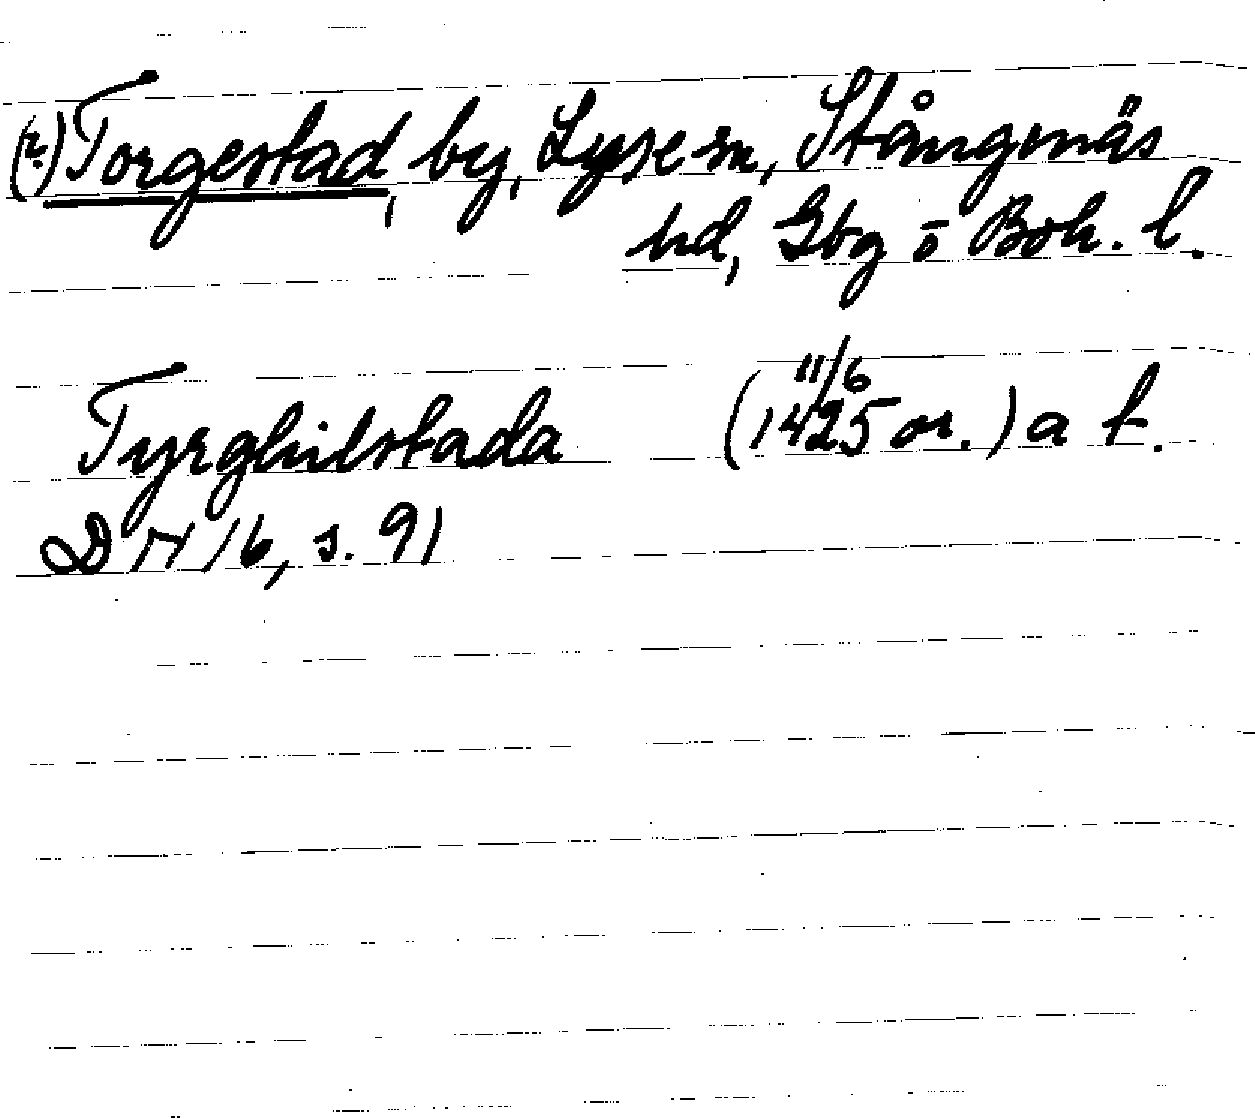 (?) Torgestad, by, Lyse sn, Stångenäs
hd, Gbg o Boh. l.
Tyrghilstada (11/6 1425 or.) a f.
DN 16, s. 91